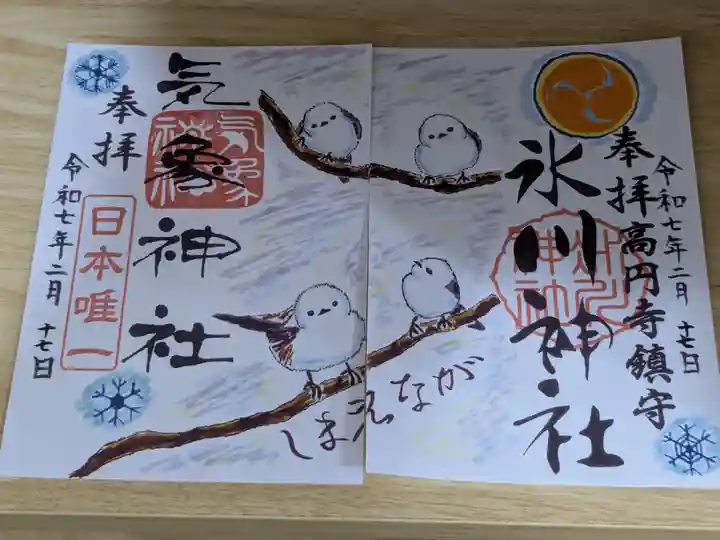 奉拝 高円寺鎮守
令和七年二月 十七日
氷川神社
氷川神社
しまえなが
気象神社
気象神社
奉拝
日本唯一
令和七年二月 十七日